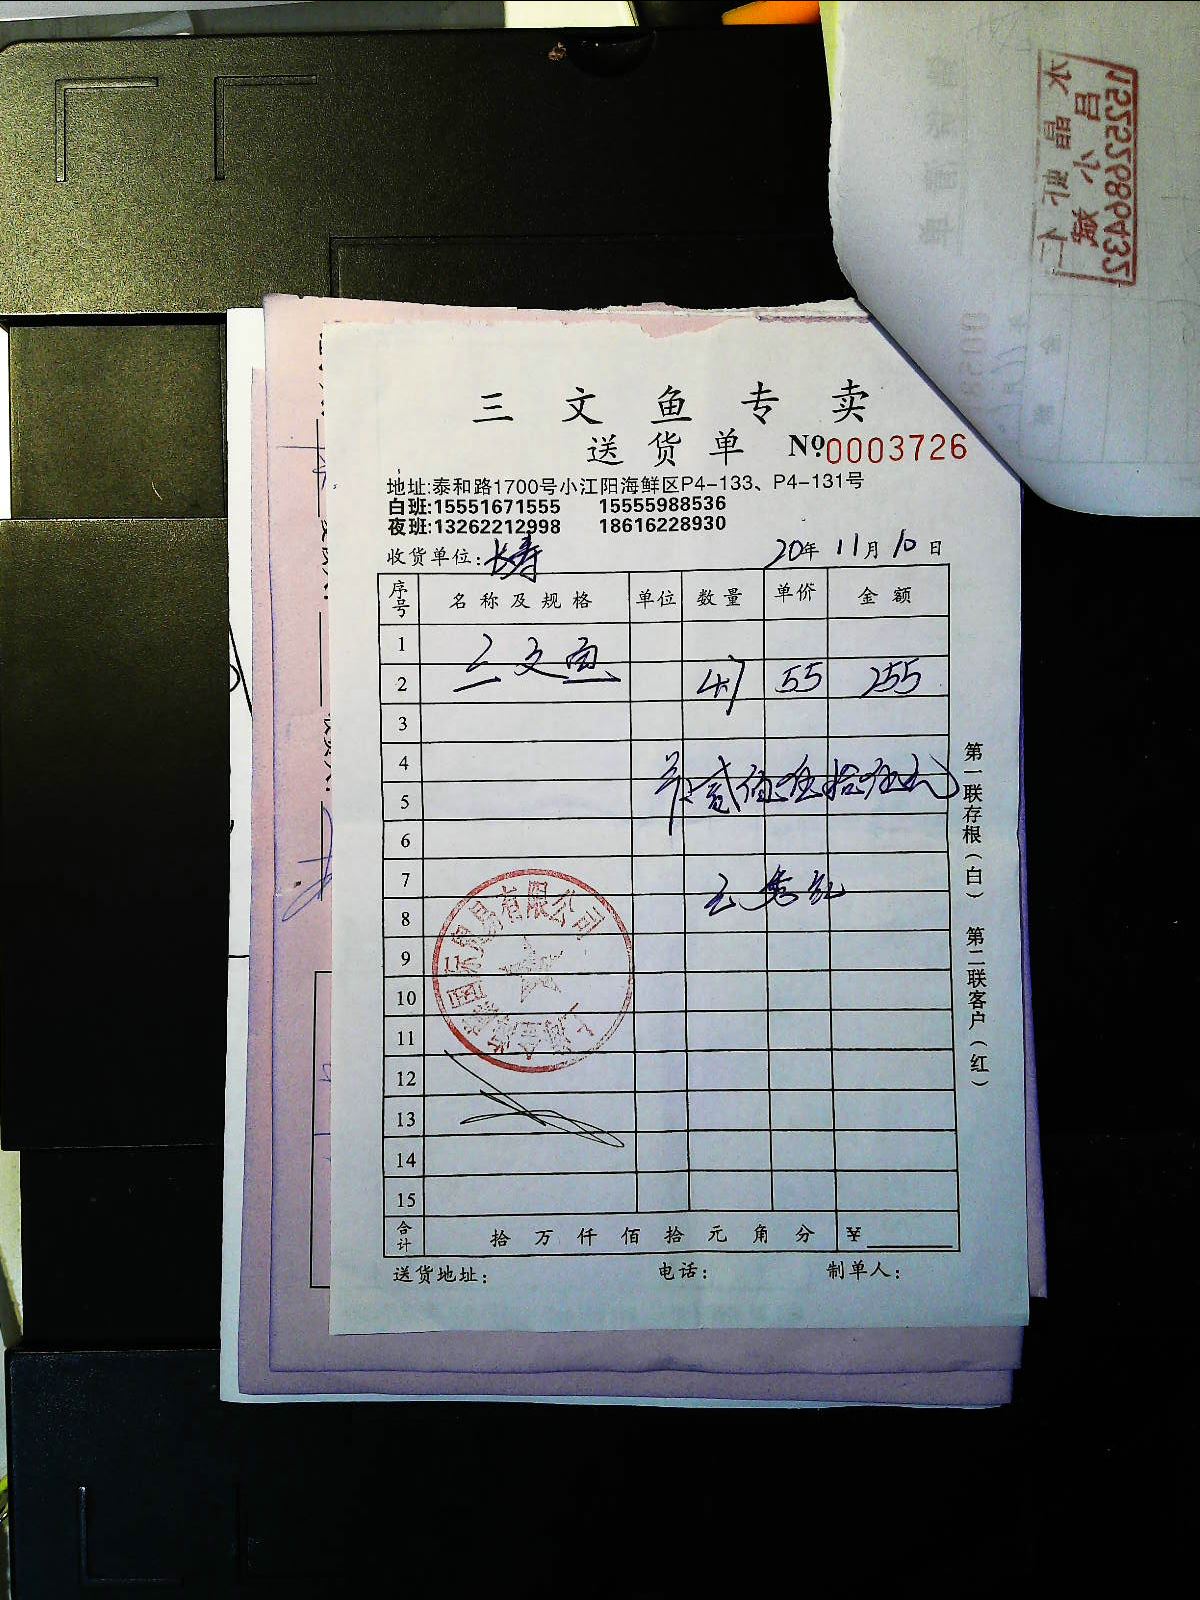 三文鱼专卖
送货单 №0003726
地址:泰和路1700号小江阳海鲜区P4-133、P4-131号
白班:15551671555 15555988536
夜班:13262212998 18616228930
收货单位:长寿 20年 11月 10日
序号 名称及规格 单位 数量 单价 金额
1 三文鱼
2 55 255
3
4
5 贰佰伍拾伍元
6
7
8
9
10
11
12
13
14
15
合计 拾 万 仟 佰 拾 元 角 分 ¥
送货地址: 电话: 制单人:
第一联存根(白) 第二联客户(红)
国际贸易有限公司
15252686432
昌小
水晶